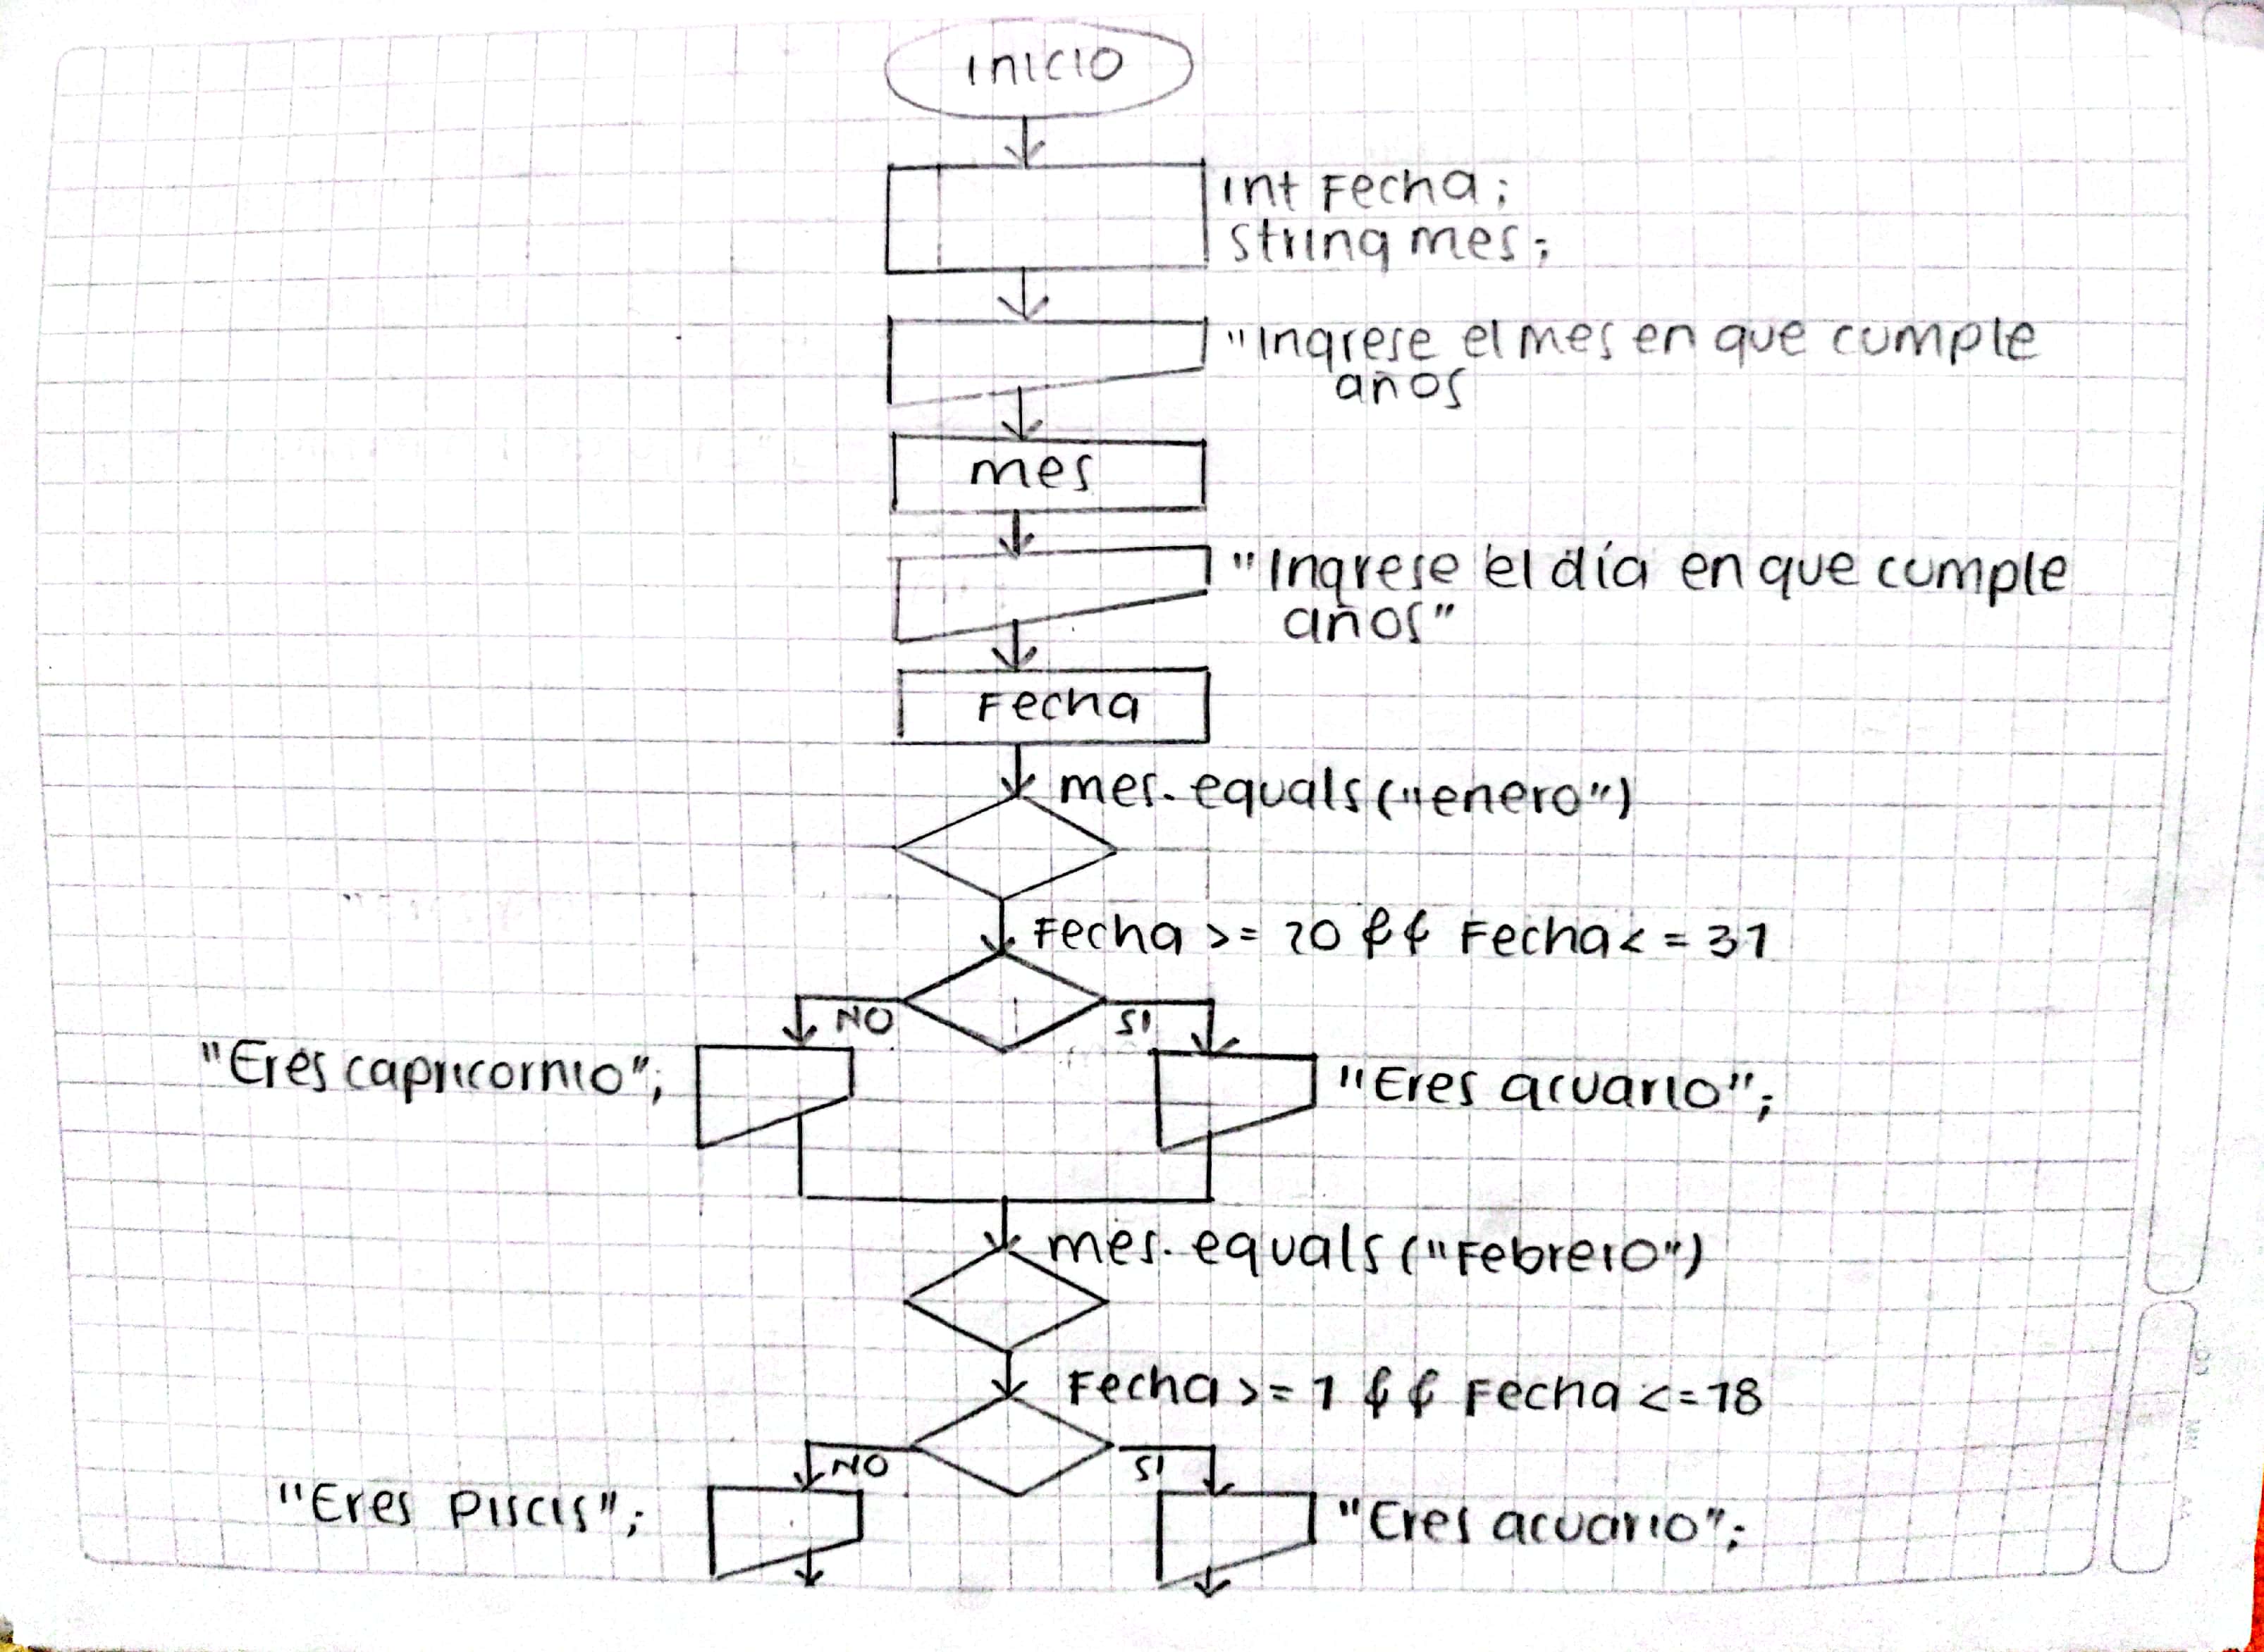 Inicio
Int Fecha;
String mes;
"Ingrese el mes en que cumple
años
mes
"Ingrese el día en que cumple
años"
Fecha
mes.equals("enero")
Fecha >= 20 && Fecha <= 31
NO
SI
"Eres capricornio";
"Eres acuario";
mes.equals("Febrero")
Fecha >= 1 && Fecha <= 18
NO
SI
"Eres Piscis";
"Eres acuario";